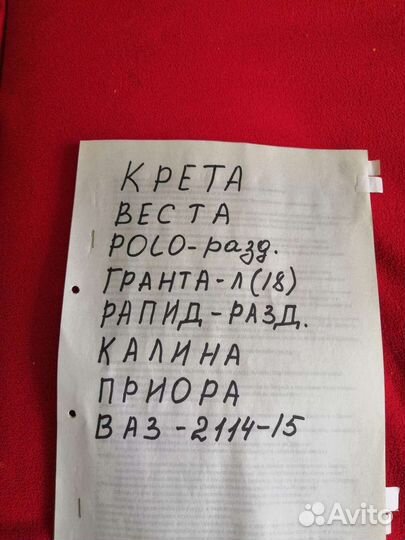 КРЕТА
ВЕСТА
POLO-разд.
ГРАНТА-Л(18)
РАПИД-РАЗД.
КАЛИНА
ПРИОРА
ВАЗ-2114-15
Avito